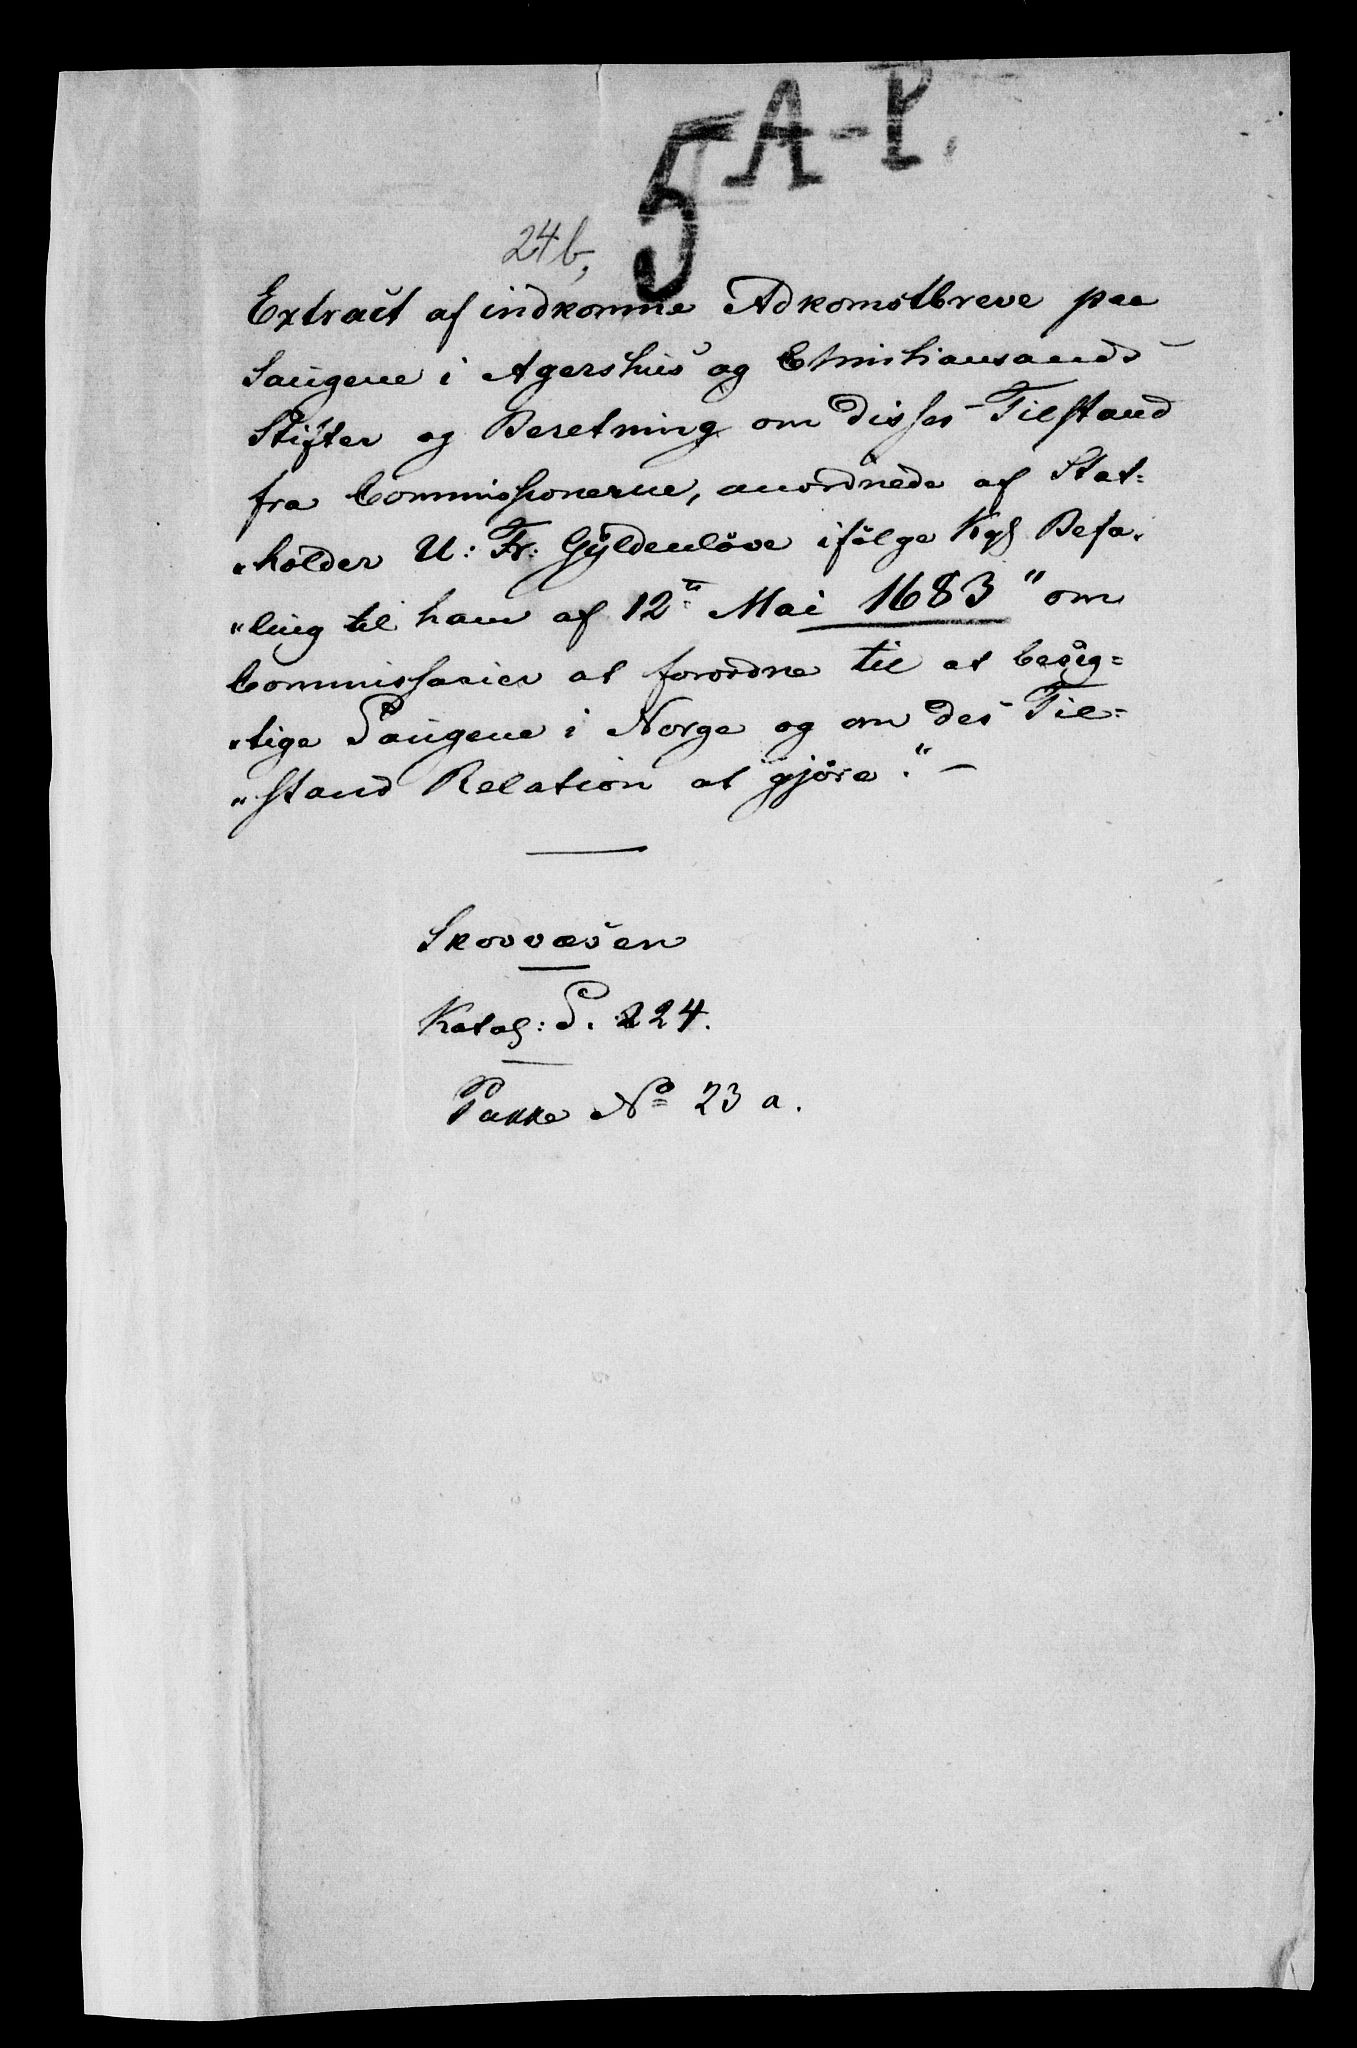 5 A-P.
24 b,
Extract af indkomne Adkomstbreve paa
Saugene i Agershus og Christiansands
Stifter og Beretning om disses Tilstand
fra Commissionerne, anordnede af Stat=
"holder U: Fr: Gyldenløve ifølge Kgl Befa=
"ling til ham af 12te Mai 1683 " om
Commissarier at forordne til at besig=
"tige Saugene i Norge og om des Til=
"stand Relation at gjøre." —
Skovvæsen
Katal: P. 224.
Pakke No 23 a.